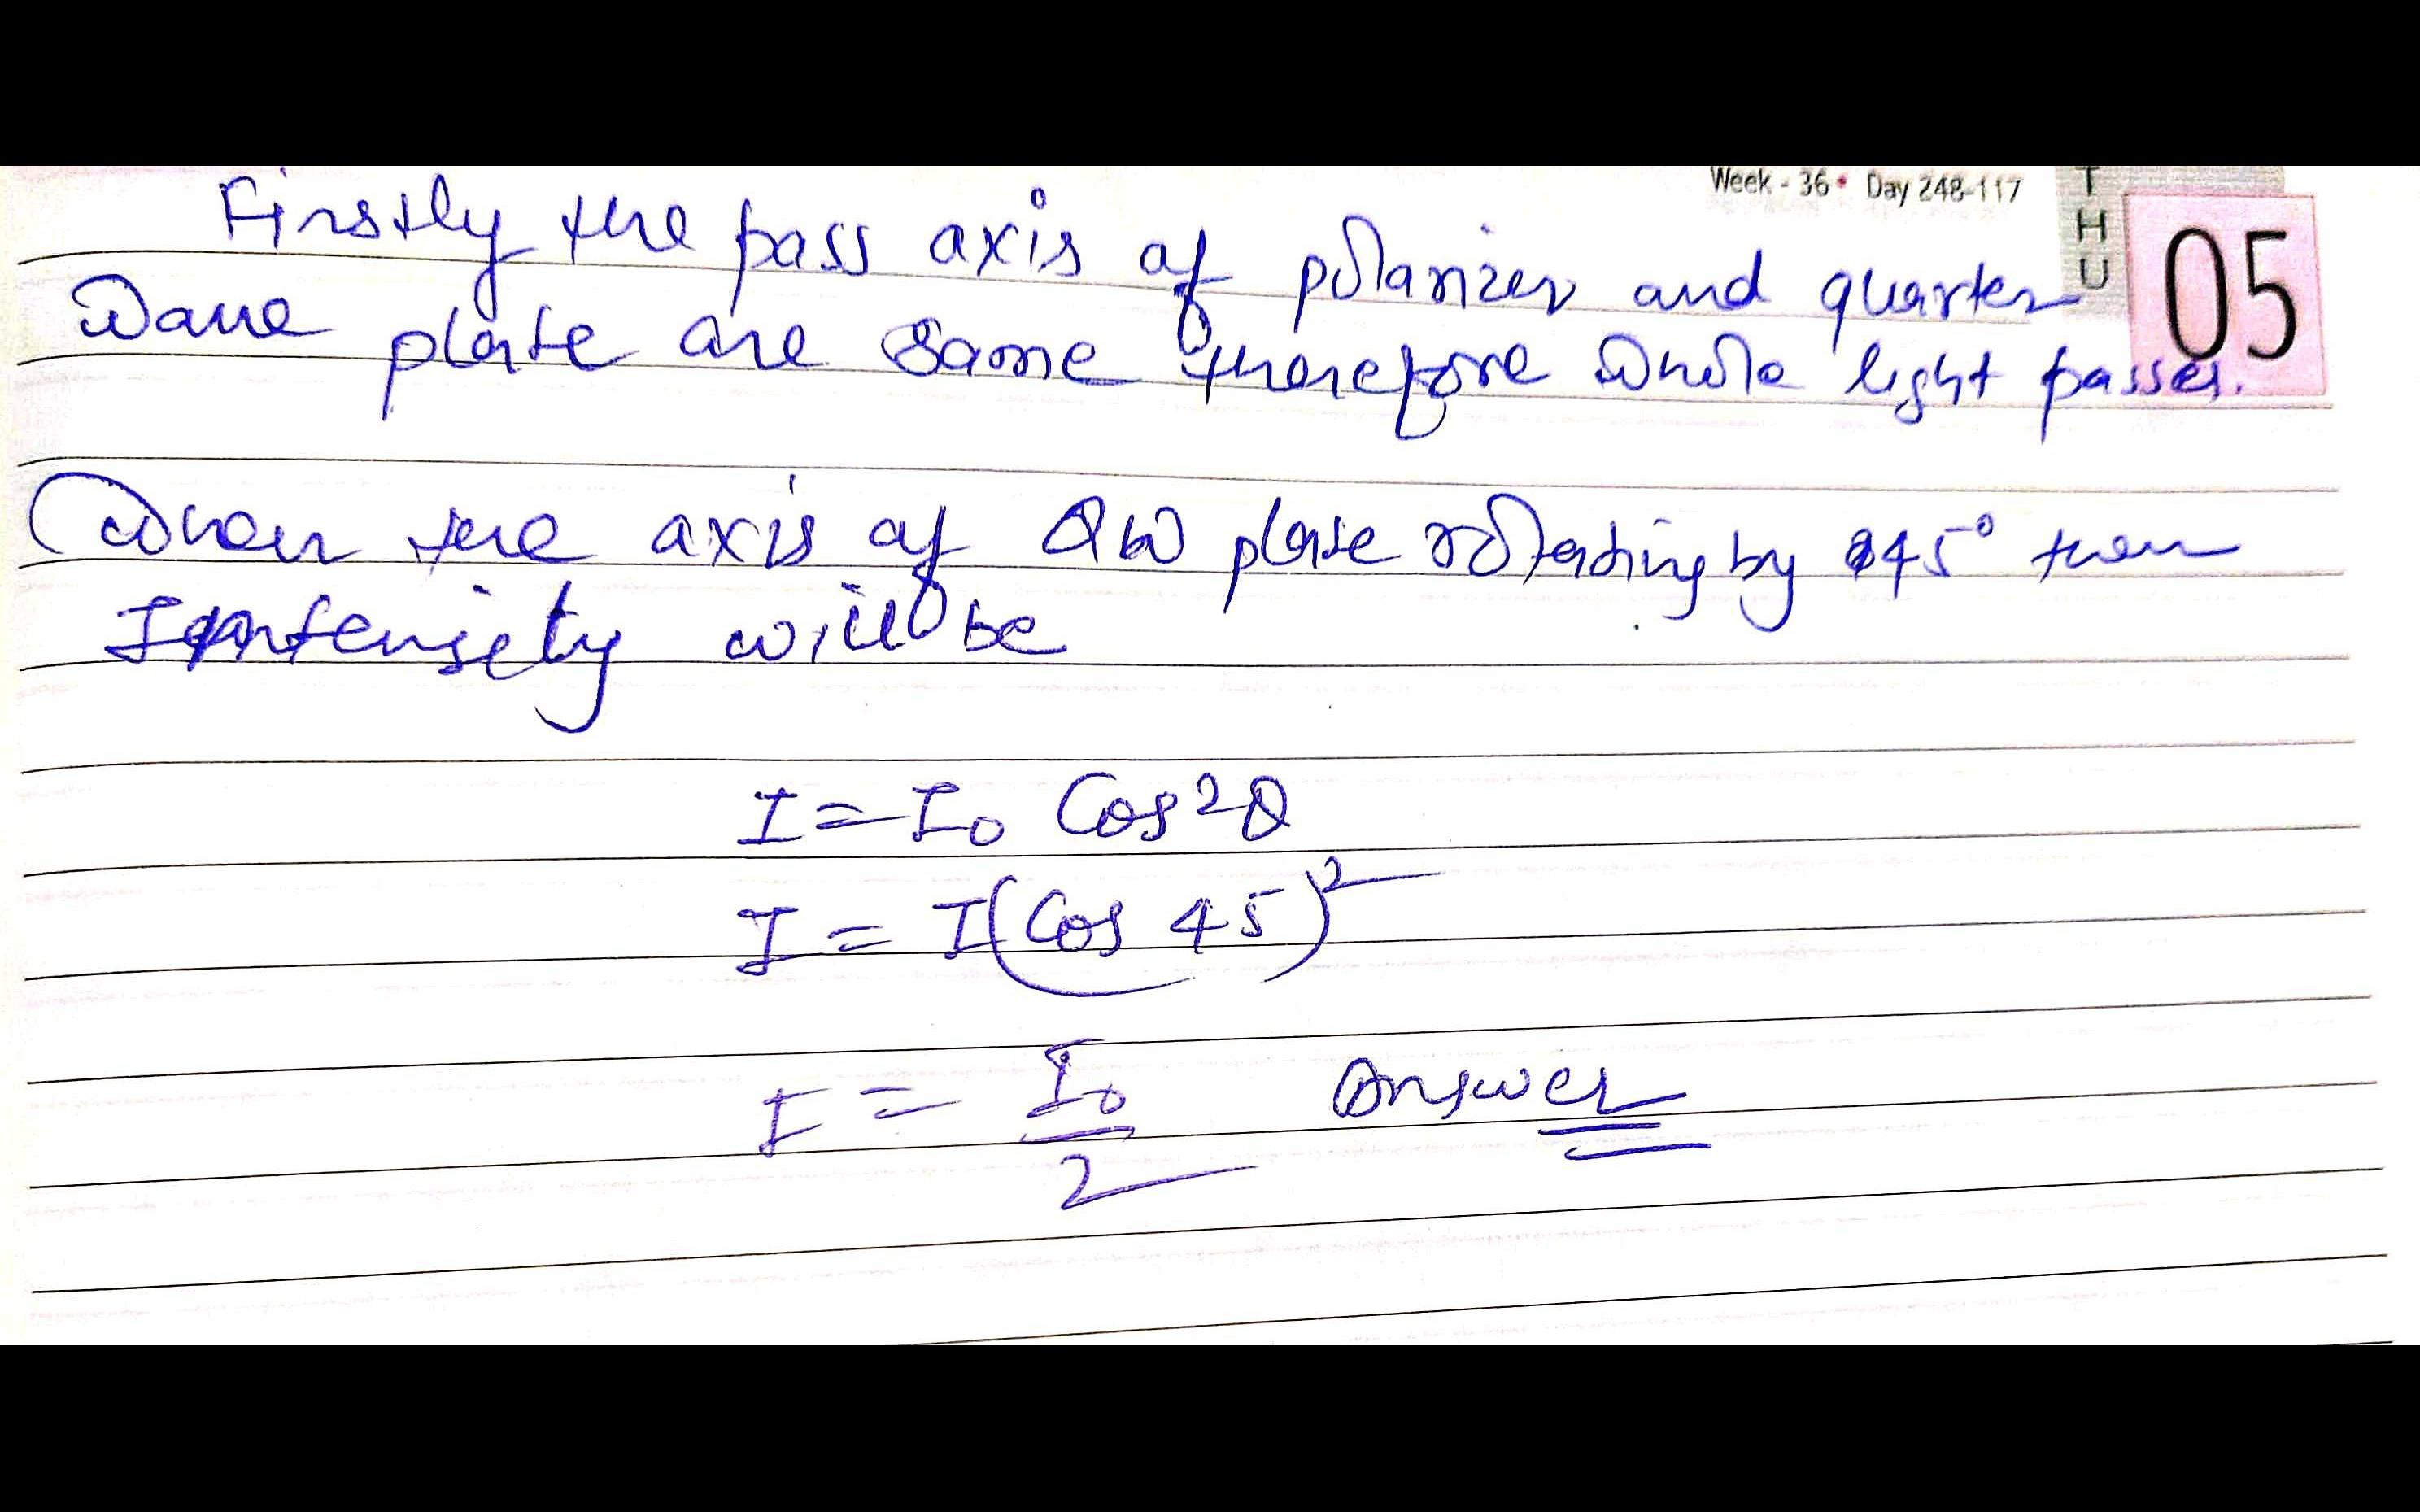 Week - 36 • Day 248-117
THU
05
Firstly the pass axis of polarizer and quarter
Wave plate are same therefore whole light passes.
When the axis of QW plate rotating by 45° then
Intensity will be
I = I₀ Cos²θ
I = I(Cos 45)²
I = I₀/2 Answer